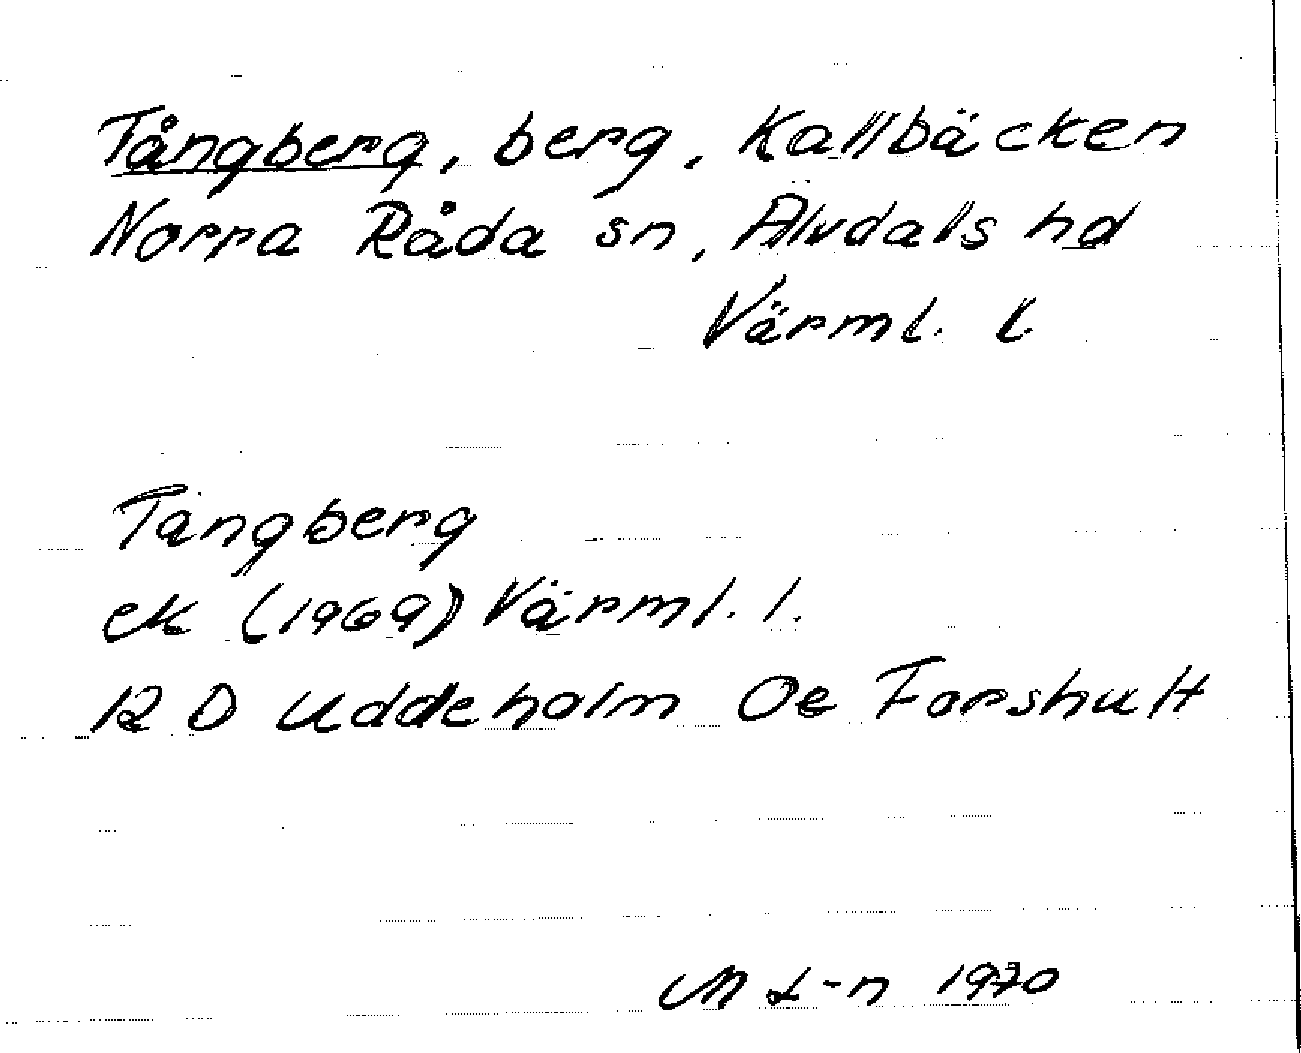 Tångberg, berg, Kallbäcken
Norra Råda sn, Älvdals hd
Värml. l.
Tångberg
ek (1969) Värml. l.
12 D Uddeholm 0e Forshult
M L-n 1970